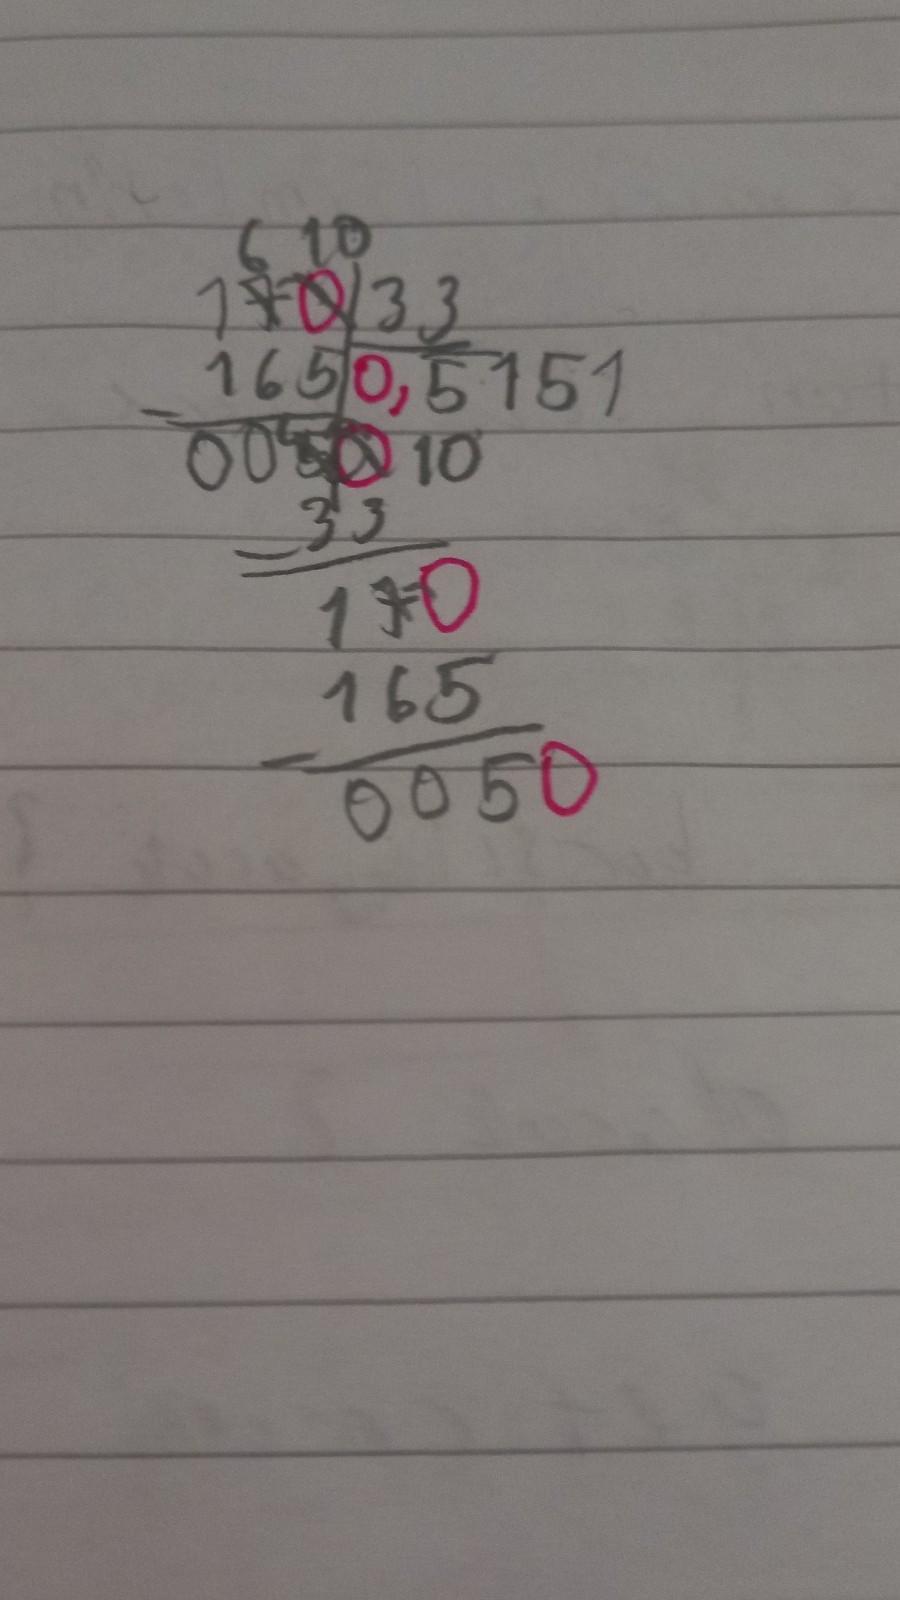 6 10
170 33
165 0,5151
0050 10
33
170
165
0050